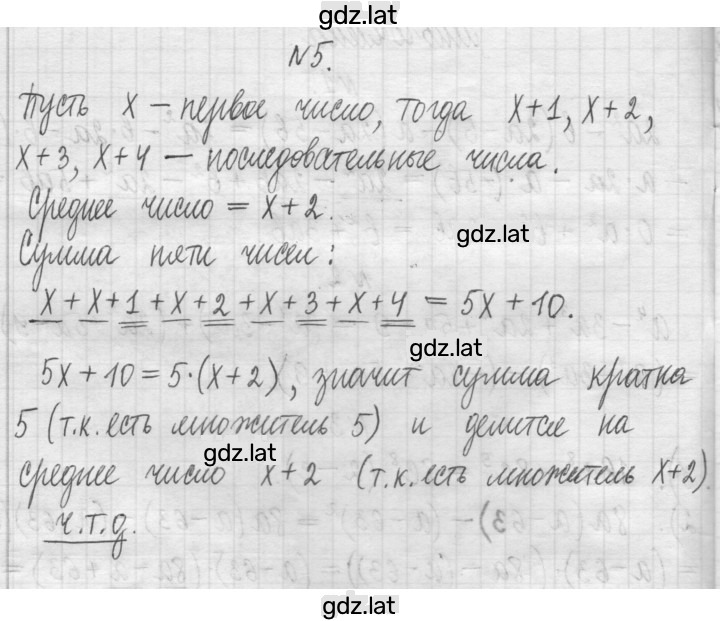 gdz.lat
N5.
Пусть x – первое число, тогда x+1, x+2,
x+3, x+4 – последовательные числа.
Среднее число = x+2.
gdz.lat
Сумма пяти чисел:
x+x+1+x+2+x+3+x+4 = 5x+10.
gdz.lat
5x+10=5·(x+2), значит сумма кратна
5 (т.к. есть множитель 5) и делится на
gdz.lat
среднее число x+2 (т.к. есть множитель x+2).
ч.т.д.
gdz.lat